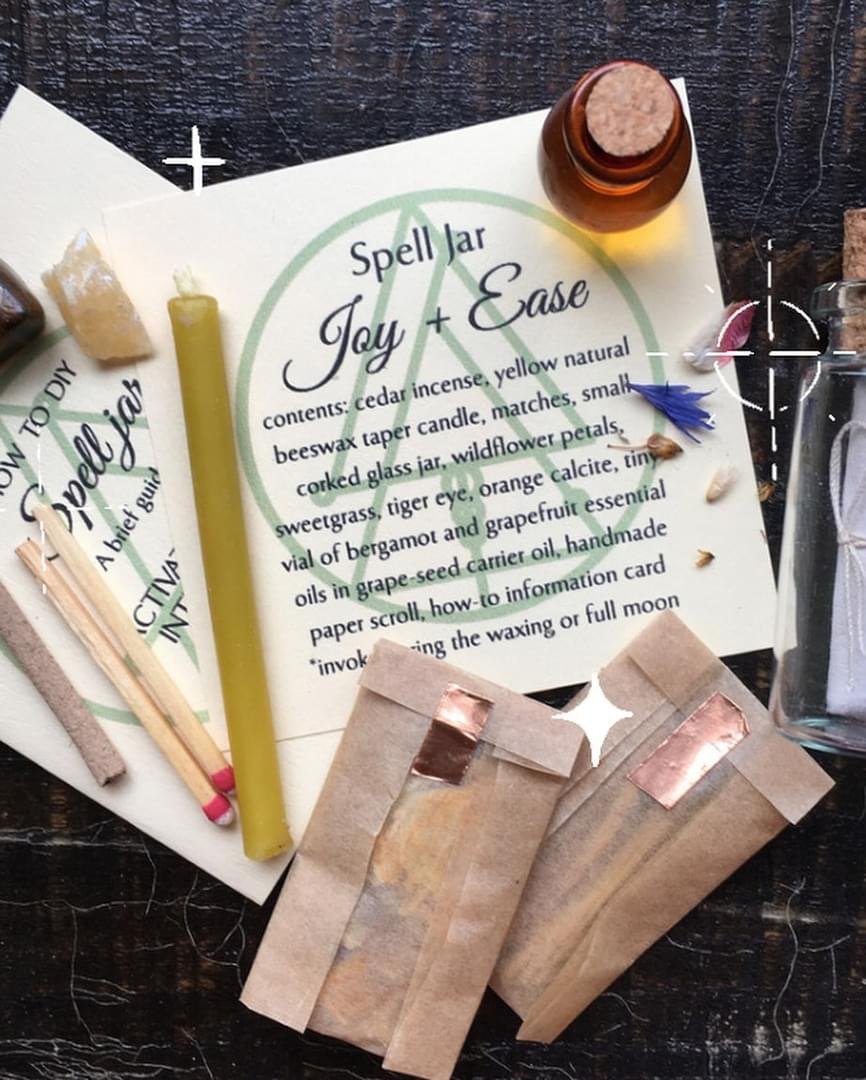 Spell Jar
Joy + Ease
contents: cedar incense, yellow natural
beeswax taper candle, matches, small
corked glass jar, wildflower petals,
sweetgrass, tiger eye, orange calcite, tiny
vial of bergamot and grapefruit essential
oils in grape-seed carrier oil, handmade
paper scroll, how-to information card
the waxing or full moon
TO DIY
Spell jar
A brief